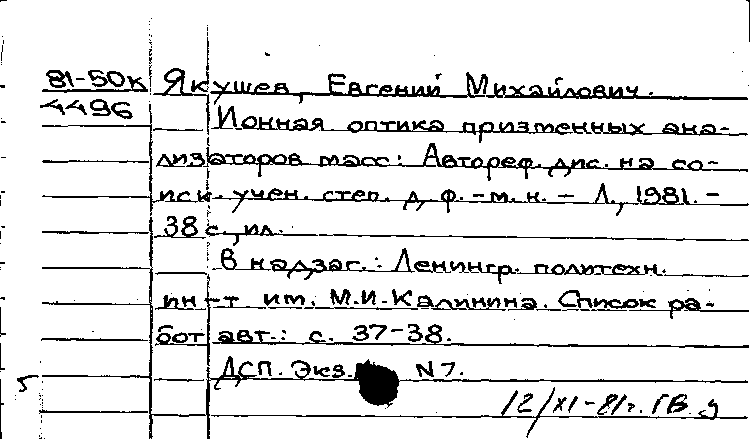 81-50к Якушев, Евгений Михайлович.
4496
Ионная оптика призменных ана-
лизаторов масс: Автореф. дис. на со-
иск. учен. степ. д. ф.-м. н. - Л., 1981. -
38 с., ил.
В надзаг.: Ленингр. политехн.
ин-т им. М.И. Калинина. Список ра-
бот авт.: с. 37-38.
ДСП. Экз. N 7.
5
12/XI-81г. ГВ